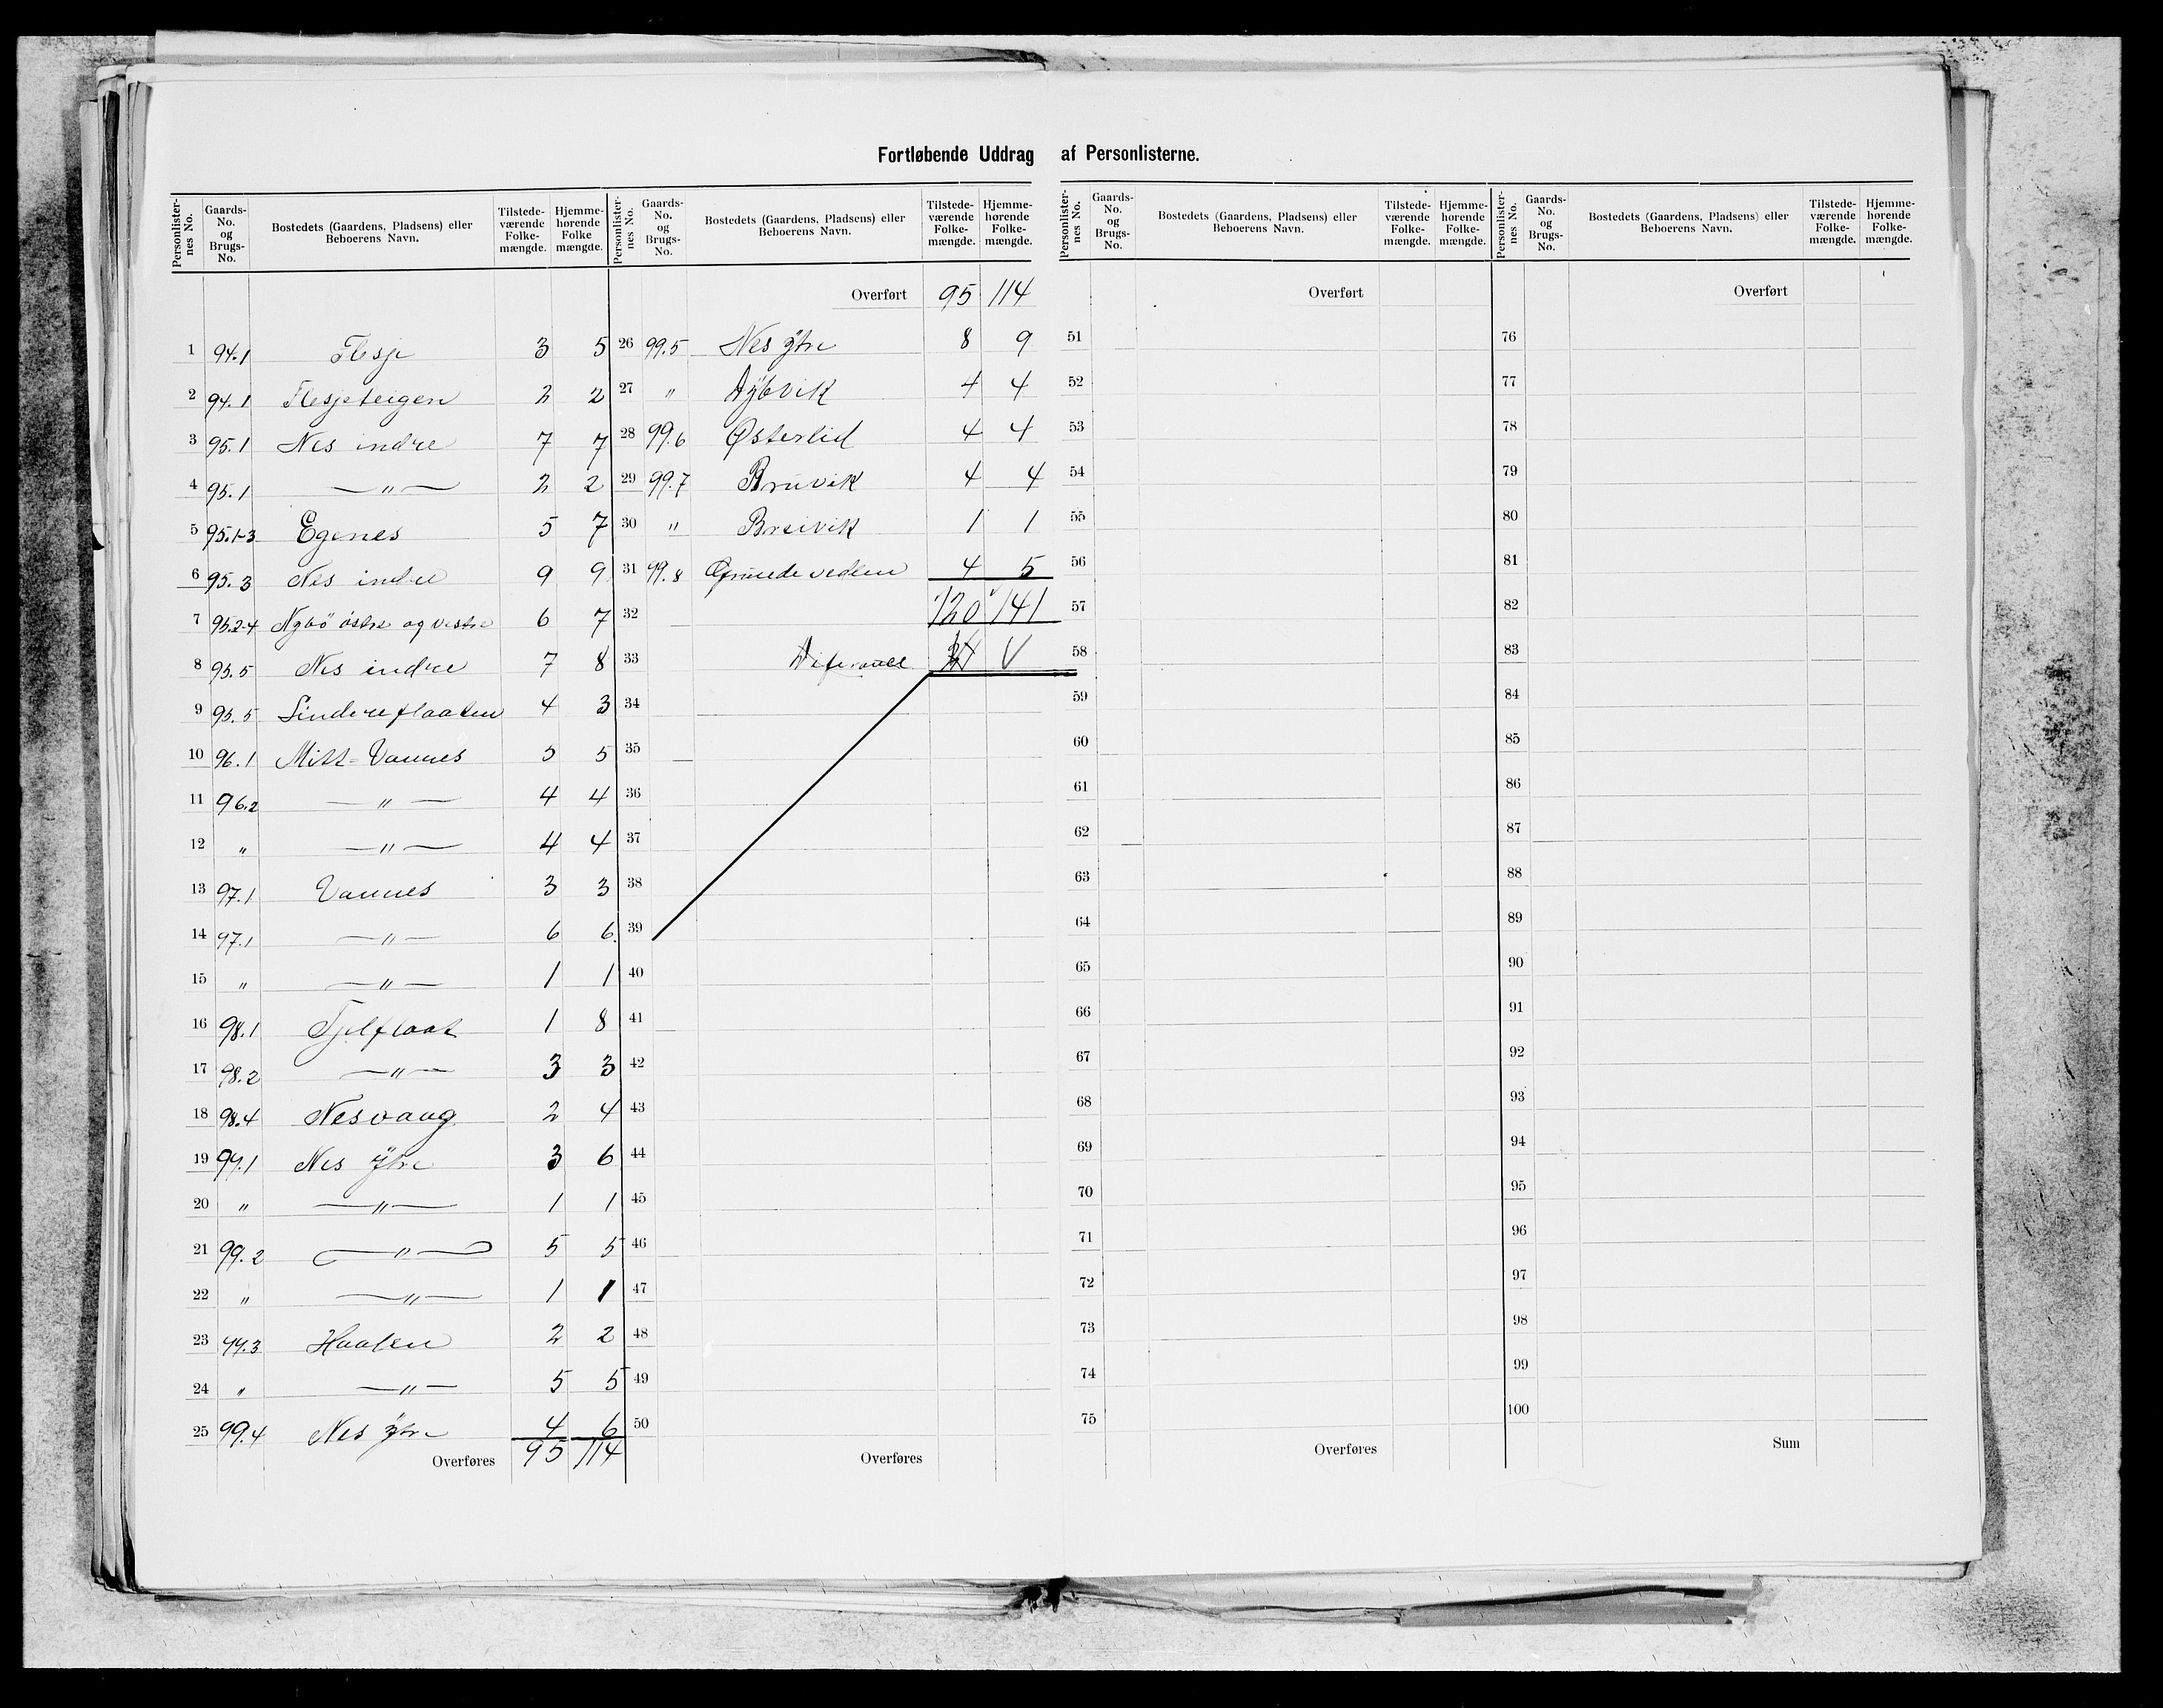 Fortløbende Uddrag af Personlisterne.
Personlisternes No. Gaards-No. og Brugs-No. Bostedets (Gaardens, Pladsens) eller Beboerens Navn. Tilstedeværende Folkemængde. Hjemmehørende Folkemængde.
1 94.1 Flesje 3 5
2 94.1 Flesjeteigen 2 2
3 95.1 Nes indre 7 7
4 95.1 —„— 2 2
5 95.1-3 Egenes 5 7
6 95.3 Nes indre 9 9
7 95.2-4 Nybö östre og vestre 6 7
8 95.5 Nes indre 7 8
9 95.5 Lindereflaaten 4 3
10 96.1 Mitt-Vannes 5 5
11 96.2 —„— 4 4
12 „ —„— 4 4
13 97.1 Vannes 3 3
14 97.1 —„— 6 6
15 „ —„— 1 1
16 98.1 Tjelflaat 1 8
17 98.2 —„— 3 3
18 98.4 Nesvaag 2 4
19 99.1 Nes ÿtre 3 6
20 „ —„— 1 1
21 99.2 —„— 5 5
22 „ —„— 1 1
23 99.3 Haaten 2 2
24 „ —„— 5 5
25 99.4 Nes ÿtre 4 6
Overføres 95 114
Personlisternes No. Gaards-No. og Brugs-No. Bostedets (Gaardens, Pladsens) eller Beboerens Navn. Tilstedeværende Folkemængde. Hjemmehørende Folkemængde.
Overført 95 114
26 99.5 Nes ÿtre 8 9
27 „ Dÿbvik 4 4
28 99.6 Østerlid 4 4
29 99.7 Bruvik 4 4
30 „ Breivik 1 1
31 99.8 4 5
32 120 141
33
34
35
36
37
38
39
40
41
42
43
44
45
46
47
48
49
50
Overføres
Personlisternes No. Gaards-No. og Brugs-No. Bostedets (Gaardens, Pladsens) eller Beboerens Navn. Tilstedeværende Folkemængde. Hjemmehørende Folkemængde.
Overført
51
52
53
54
55
56
57
58
59
60
61
62
63
64
65
66
67
68
69
70
71
72
73
74
75
Overføres
Personlisternes No. Gaards-No. og Brugs-No. Bostedets (Gaardens, Pladsens) eller Beboerens Navn. Tilstedeværende Folkemængde. Hjemmehørende Folkemængde.
Overført
76
77
78
79
80
81
82
83
84
85
86
87
88
89
90
91
92
93
94
95
96
97
98
99
100
Sum